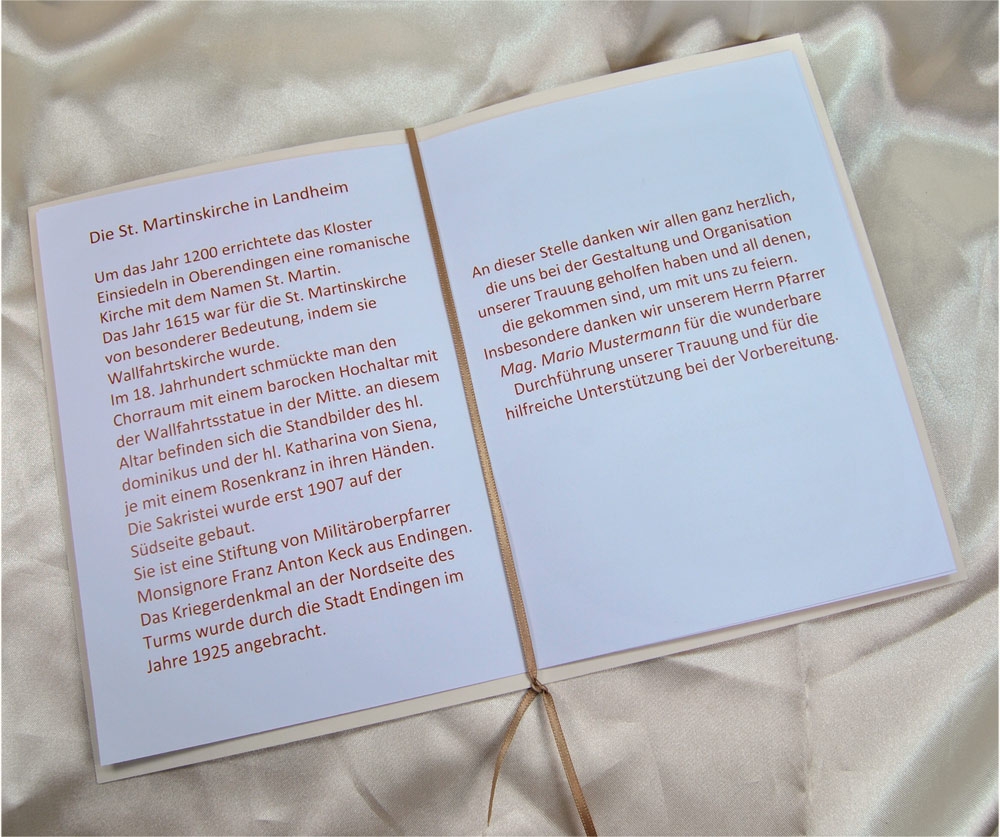 Die St. Martinskirche in Landheim
Um das Jahr 1200 errichtete das Kloster
Einsiedeln in Oberendingen eine romanische
Kirche mit dem Namen St. Martin.
Das Jahr 1615 war für die St. Martinskirche
von besonderer Bedeutung, indem sie
Wallfahrtskirche wurde.
Im 18. Jahrhundert schmückte man den
Chorraum mit einem barocken Hochaltar mit
der Wallfahrtsstatue in der Mitte. an diesem
Altar befinden sich die Standbilder des hl.
dominikus und der hl. Katharina von Siena,
je mit einem Rosenkranz in ihren Händen.
Die Sakristei wurde erst 1907 auf der
Südseite gebaut.
Sie ist eine Stiftung von Militäroberpfarrer
Monsignore Franz Anton Keck aus Endingen.
Das Kriegerdenkmal an der Nordseite des
Turms wurde durch die Stadt Endingen im
Jahre 1925 angebracht.
An dieser Stelle danken wir allen ganz herzlich,
die uns bei der Gestaltung und Organisation
unserer Trauung geholfen haben und all denen,
die gekommen sind, um mit uns zu feiern.
Insbesondere danken wir unserem Herrn Pfarrer
Mag. Mario Mustermann für die wunderbare
Durchführung unserer Trauung und für die
hilfreiche Unterstützung bei der Vorbereitung.